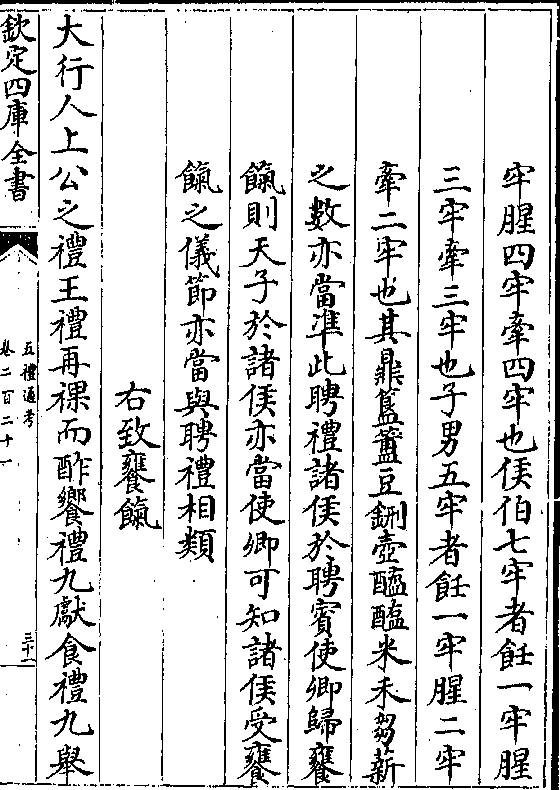 牢腥四牢牽四牢也侯伯七牢者飪一牢腥
三牢牽三牢也子男五牢者飪一牢腥二牢
牽二牢也其鼎簋簠豆鉶壺醯醢米禾芻薪
之數亦當準此聘禮諸侯於聘賓使卿歸饔
餼則天子於諸侯亦當使卿可知諸侯受饔
餼之儀節亦當與聘禮相類
右致饔餼
大行人上公之禮王禮再祼而酢饗禮九獻食禮九舉
欽定四庫全書
五禮通考
卷二百二十一
三十一